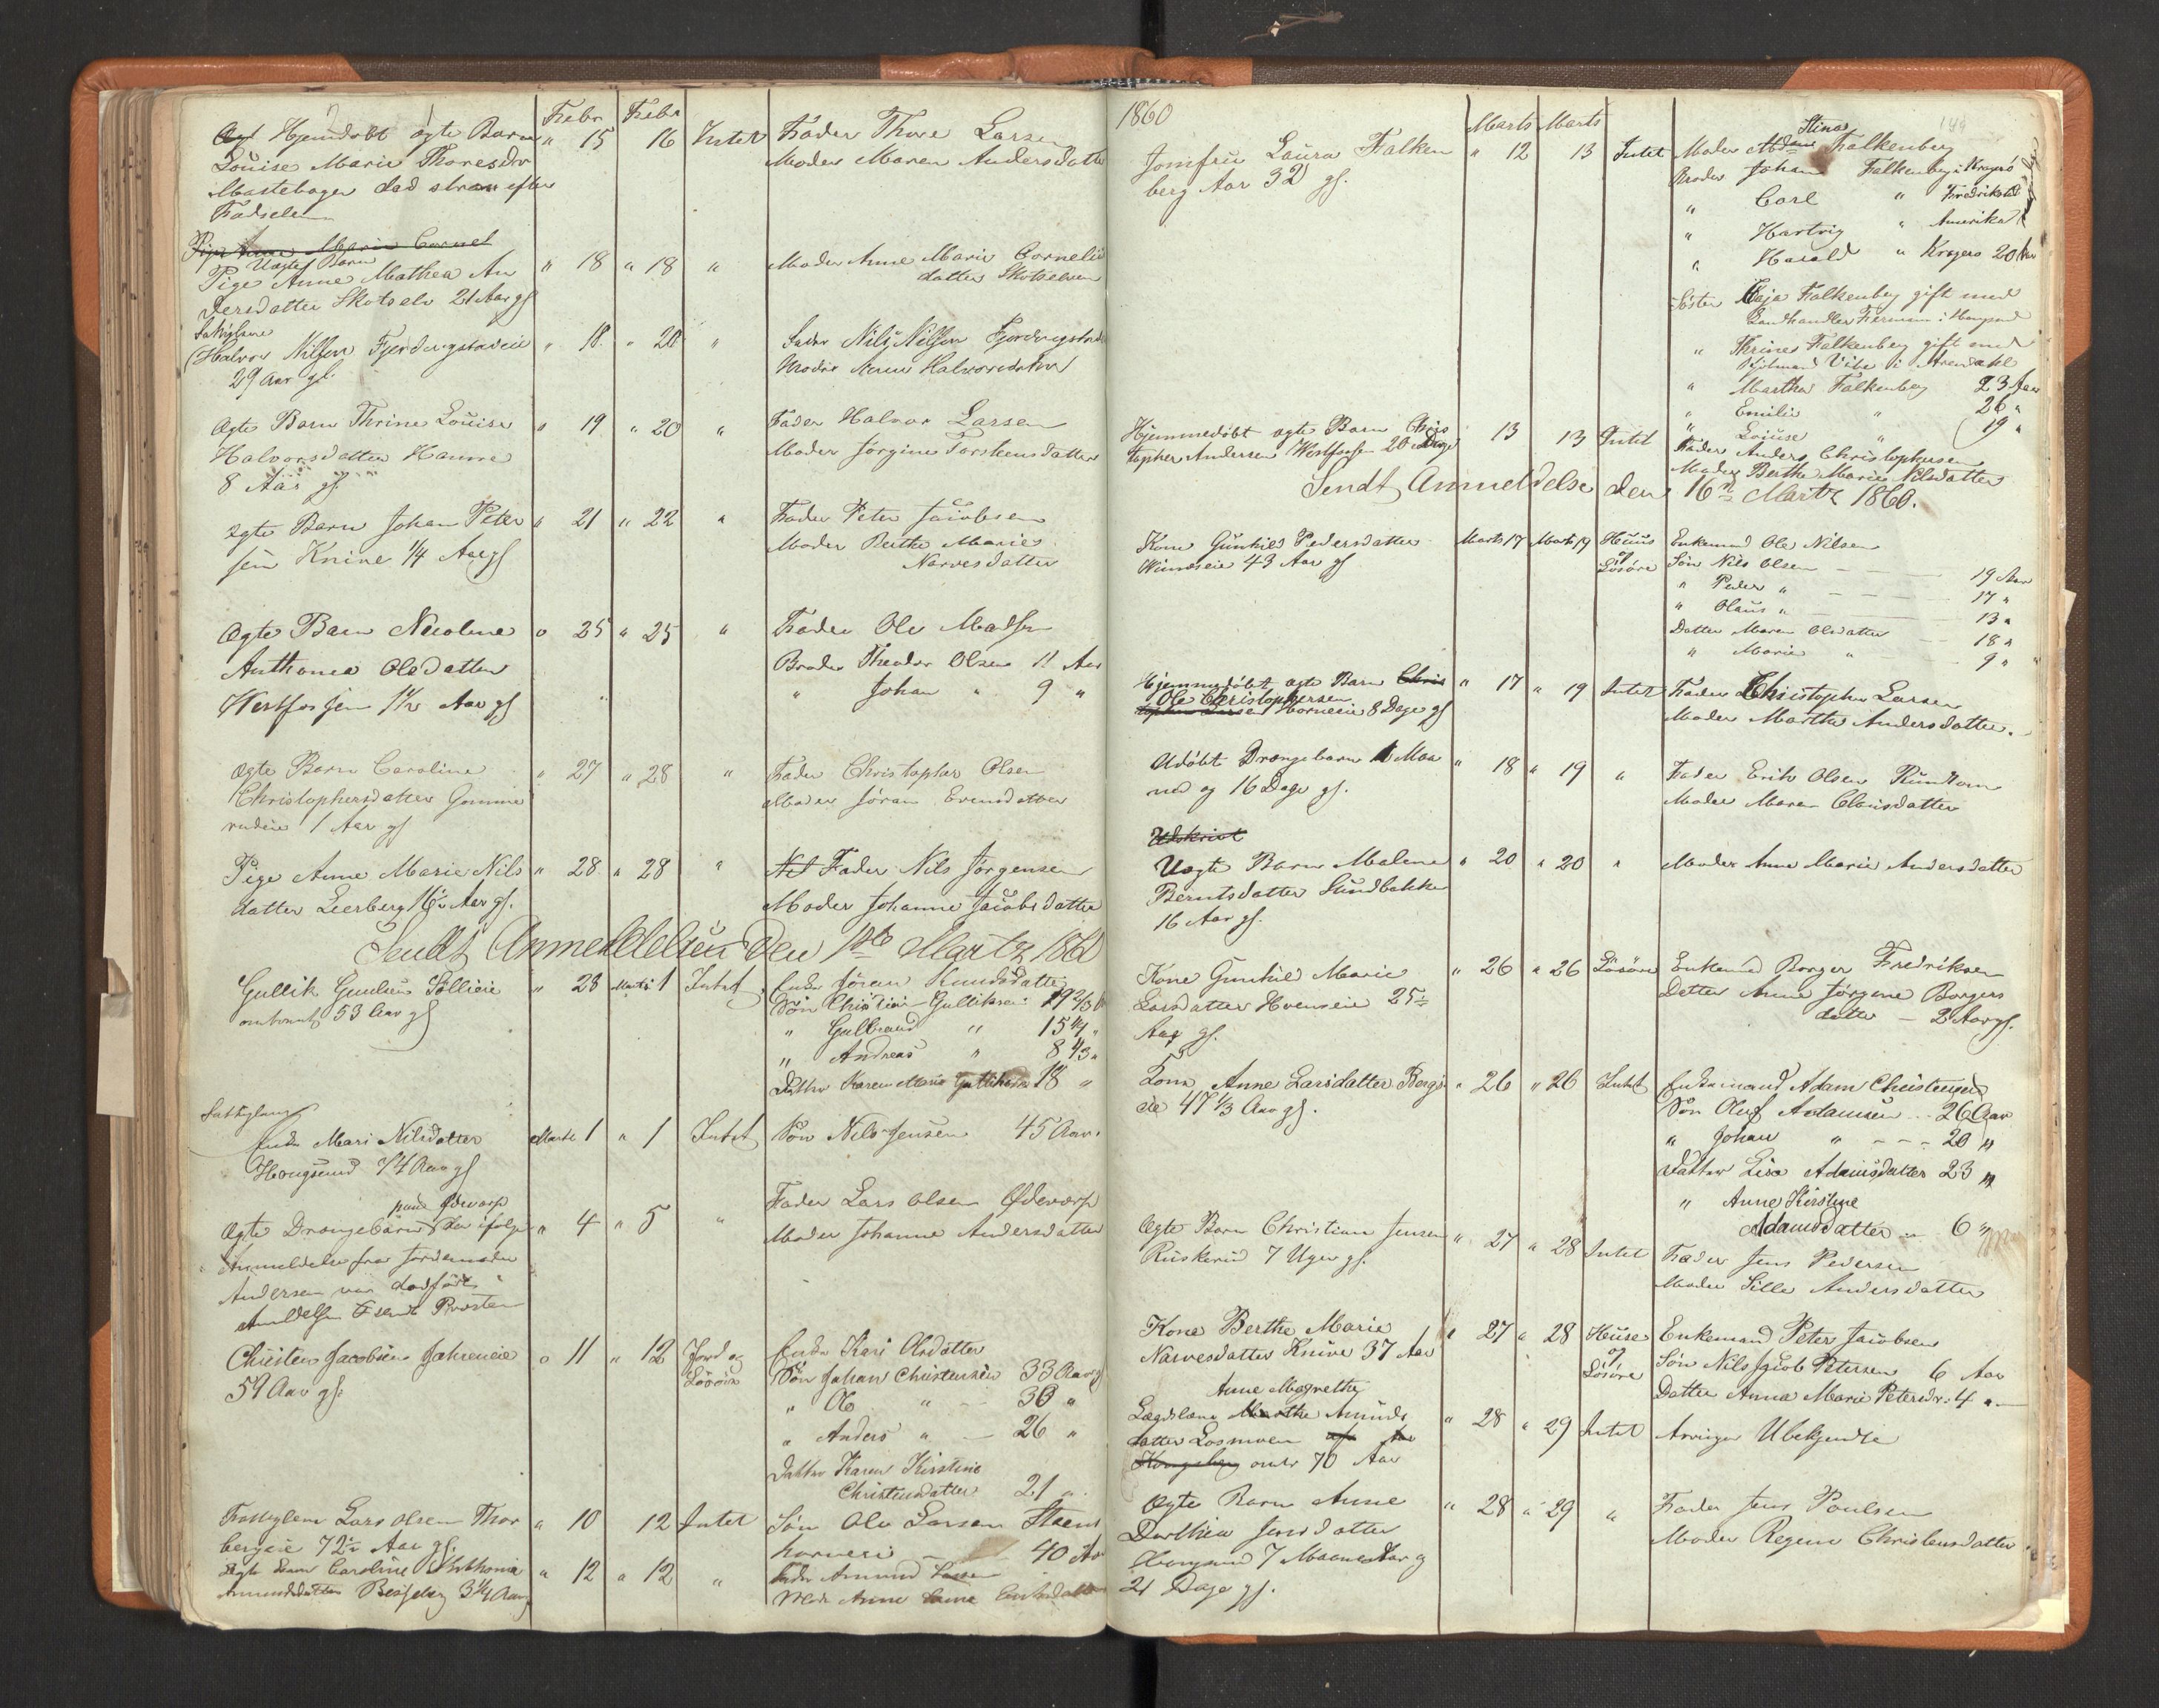 Febr Febr
Ægt Hjemdøbt ægte Barn " 15 16 Intet Fader Thore Larsen
Louise Marie Thoresdtr Moder Maren Andersdatter
Mastebogen død strax efter
Fødselen
Pige Anne Marie Cornel
Uægte Barn
Pige Anne Mathea An " 18 " 18 " Moder Anne Marie Cornelius
dersdatter Skotselv 21 Aar gl datter Skotselven
Halvor Nilsen Fjerdingstadeie " 18 " 20 " Fader Nils Nilsen Fjerdingstad
29 Aar gl. Moder Halvorsdatter
Ægte Barn Thrine Louise " 19 " 20 " Fader Halvor Larsen
Halvorsdatter Moder Jørgine Torstensdatter
8 Aar gl.
Ægte Barn Johan Peter " 21 " 22 " Fader Peter Jacobsen
sen Knive 1/4 Aar gl Moder Berthe Marie
Narvesdatter
Ægte Barn Nicoline " 25 " 25 " Fader Ole Madsen
Anthonea Olsdatter Broder Theodor Olsen 11 Aar
Westfossen 1 1/2 Aar gl " Johan " 9 "
Ægte Barn Caroline " 27 " 28 " Fader Christopher Olsen
Christophersdatter Moder Jøran Evensdatter
1 Aar gl
Pige Anne Marie Nils " 28 " 28 " Fader Nils Jørgensen
datter Leerberg Aar gl. Moder Johanne Jacobsdatter
Sendt Anmeldelsen den 1ste Martz 1860
Gullik Sollieie " 28 Marts 1 Intet Enke Jøran Knudsdatter
omtrent 53 Aar gl Søn Christian Gulliksen 19 2/3
" Gulbrand " 15 1/4 "
" Andreas " 8 1/3 "
Datter Karen Marie Gulliksdr 18 "
Enke Mari Nilsdatter Marts 1 " 1 Intet Søn Nils Jensen 45 Aar.
Hougsund 74 Aar gl
paa Ødevarp
Ægte Drengebarn som ifølge " 4 " 5 " Fader Lars Olsen Ødevarp
Anmeldelse fra Jordemoder Moder Johanne Andersdatter
Andersen var dødfødt
Anmeldelsen sendt Provsten
Christen Jacobsen " 11 " 12 Jord og Enke Kari Olsdatter
59 Aar gl. Løsøre Søn Johan Christensen 33 Aar gl
" Ole " 30 "
" Anders " 26 "
Datter Karen Kirstine
Christensdatter 21 "
Lars Olsen Thor " 10 12 Intet Søn Ole Larsen Steens
bergeie 72 1/2 Aar gl. 40 Aar
Ægte Barn Caroline Anthonia " 12 " 12 " Fader Amund
Amundsdatter 3 1/2 Aar Moder Anne
1860 Marts Marts
Stina
Jomfru Laura Falken " 12 13 Intet Moder Madame Falkenberg
berg Aar 32 gl. Broder Johan Falkenberg i Kragerø
" Carl " Fredrikstad
" Hartvig " Amerika
" Harald " Kragerø 20 Aar
Søster Maja Falkenberg gift med
Landhandler i Hougsund
" Thrine Falkenberg gift med
Vibe i Arendahl
" Martha Falkenberg 23 Aar
" Emilie " 26 "
" Louise " 19 "
Hjemmedøbt ægte Barn Chris 13 13 Intet Fader Anders Christophersen
topher Andersen Westfossen 20 Dage Moder Berthe Marie Nilsdatter
Sendt Anmeldelse den 16de Martz 1860.
Kone Gunhild Pedersdatter Marts 17 Marts 19 Huus Enkemand Ole Nilsen
43 Aar gl og Løsøre Søn Nils Olsen 19 Aar
" Peder " 17 "
" Olaus " 13 "
Datter Maren Olsdatter 18 "
" Marie " 9 "
Hjemmedøbt ægte Barn Chris " 17 " 19 Intet Fader Christopher Larsen
Ole Christophersen
topher Larsen Horneeie 8 Dage gl Moder Marthe Andersdatter.
Udøbt Drengebarn 1 Maa " 18 " 19 " Fader Erik Olsen Rundtom
ned og 16 Dage gl. Moder Maren Clausdatter
Udskrivt
Uægte Barn Malene " 20 " 20 " Moder Anne Marie Andersdatter
Berntsdatter Sundbakken
16 Aar gl.
Kone Gunhild Marie " 26 " 26 Løsøre Enkemand Borger Fredriksen
Larsdatter Hvenseie 25 1/2 Datter Anne Jørgine Borgers
Aar gl. datter - 2 Aar gl.
Kone Anne Larsdatter Bergs " 26 " 26 Intet Enkemand Adam Christensen
eie 47 1/3 Aar gl. Søn Oluf Adamsen 26 Aar
" Johan " 20 "
Datter Lise Adamsdatter 23 "
" Anne Kirstine
Adamsdatter 6 "
Ægte Barn Christian Jensen " 27 " 28 Intet Fader Jens Pedersen
Ruskerud 7 Uger gl. Moder Sille Andersdatter
Kone Berthe Marie " 27 " 28 Huuse Enkemand Peter Jacobsen
Narvesdatter Knive 37 Aar og Løsøre Søn Nils Jacob Petersen 6 Aar
Datter Anna Marie Petersdr. 4 "
Anne Margrethe
Lægdslem Marthe Amunds " 28 " 29 Intet Arvinger Ubekjendte
datter Losmoen af
Kongsberg omtr 70 Aar
Ægte Barn Anne " 28 " 29 " Fader Jens Poulsen
Dorthea Jensdatter Moder Regine Christensdatter
Hougsund 7 Maaneder og
21 Dage gl.